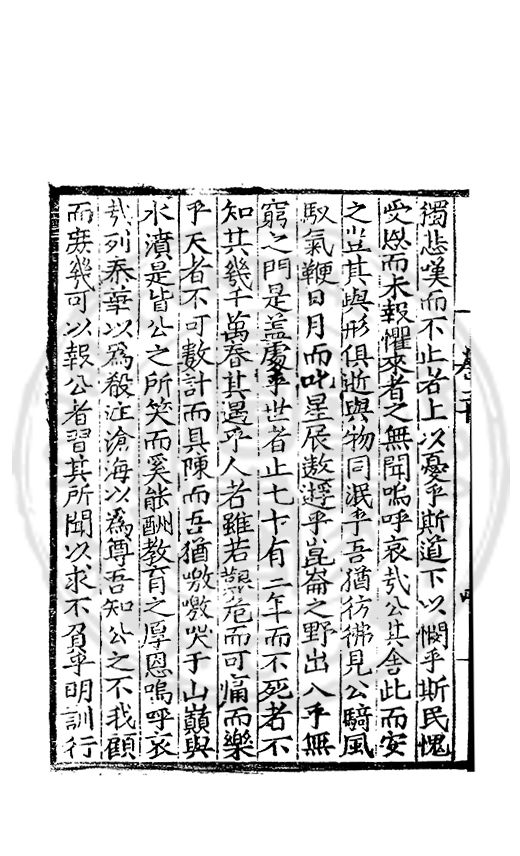 獨悲嘆而不止者上以憂乎斯道下以憫乎斯民愧
受恩而未報懼來者之無聞嗚呼哀哉公其舍此而安
之豈其與形俱逝與物同泯乎吾猶彷彿見公騎風
馭氣鞭日月而叱星辰遨遊乎崑崙之野出入乎無
窮之門是盖處乎世者止七十有二年而不死者不
知其幾千萬春其遇乎人者雖若艱危而可痛而樂
乎天者不可數計而具陳而吾猶嗷嗷哭于山巔與
水濆是皆公之所笑而奚能酬教育之厚恩嗚呼哀
哉列泰華以爲殽注滄海以爲尊吾知公之不我顧
而庶幾可以報公者習其所聞以求不負乎明訓行